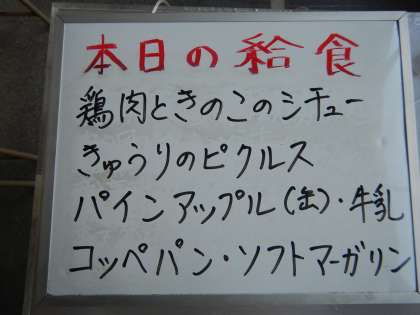 本日の給食
鶏肉ときのこのシチュー
きゅうりのピクルス
パインアップル(缶)・牛乳
コッペパン・ソフトマーガリン